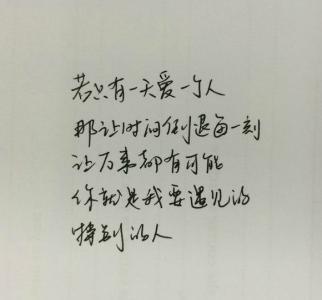 若只有一天爱一个人
那让时间倒退每一刻
让万事都有可能
你就是我要遇见的
特别的人